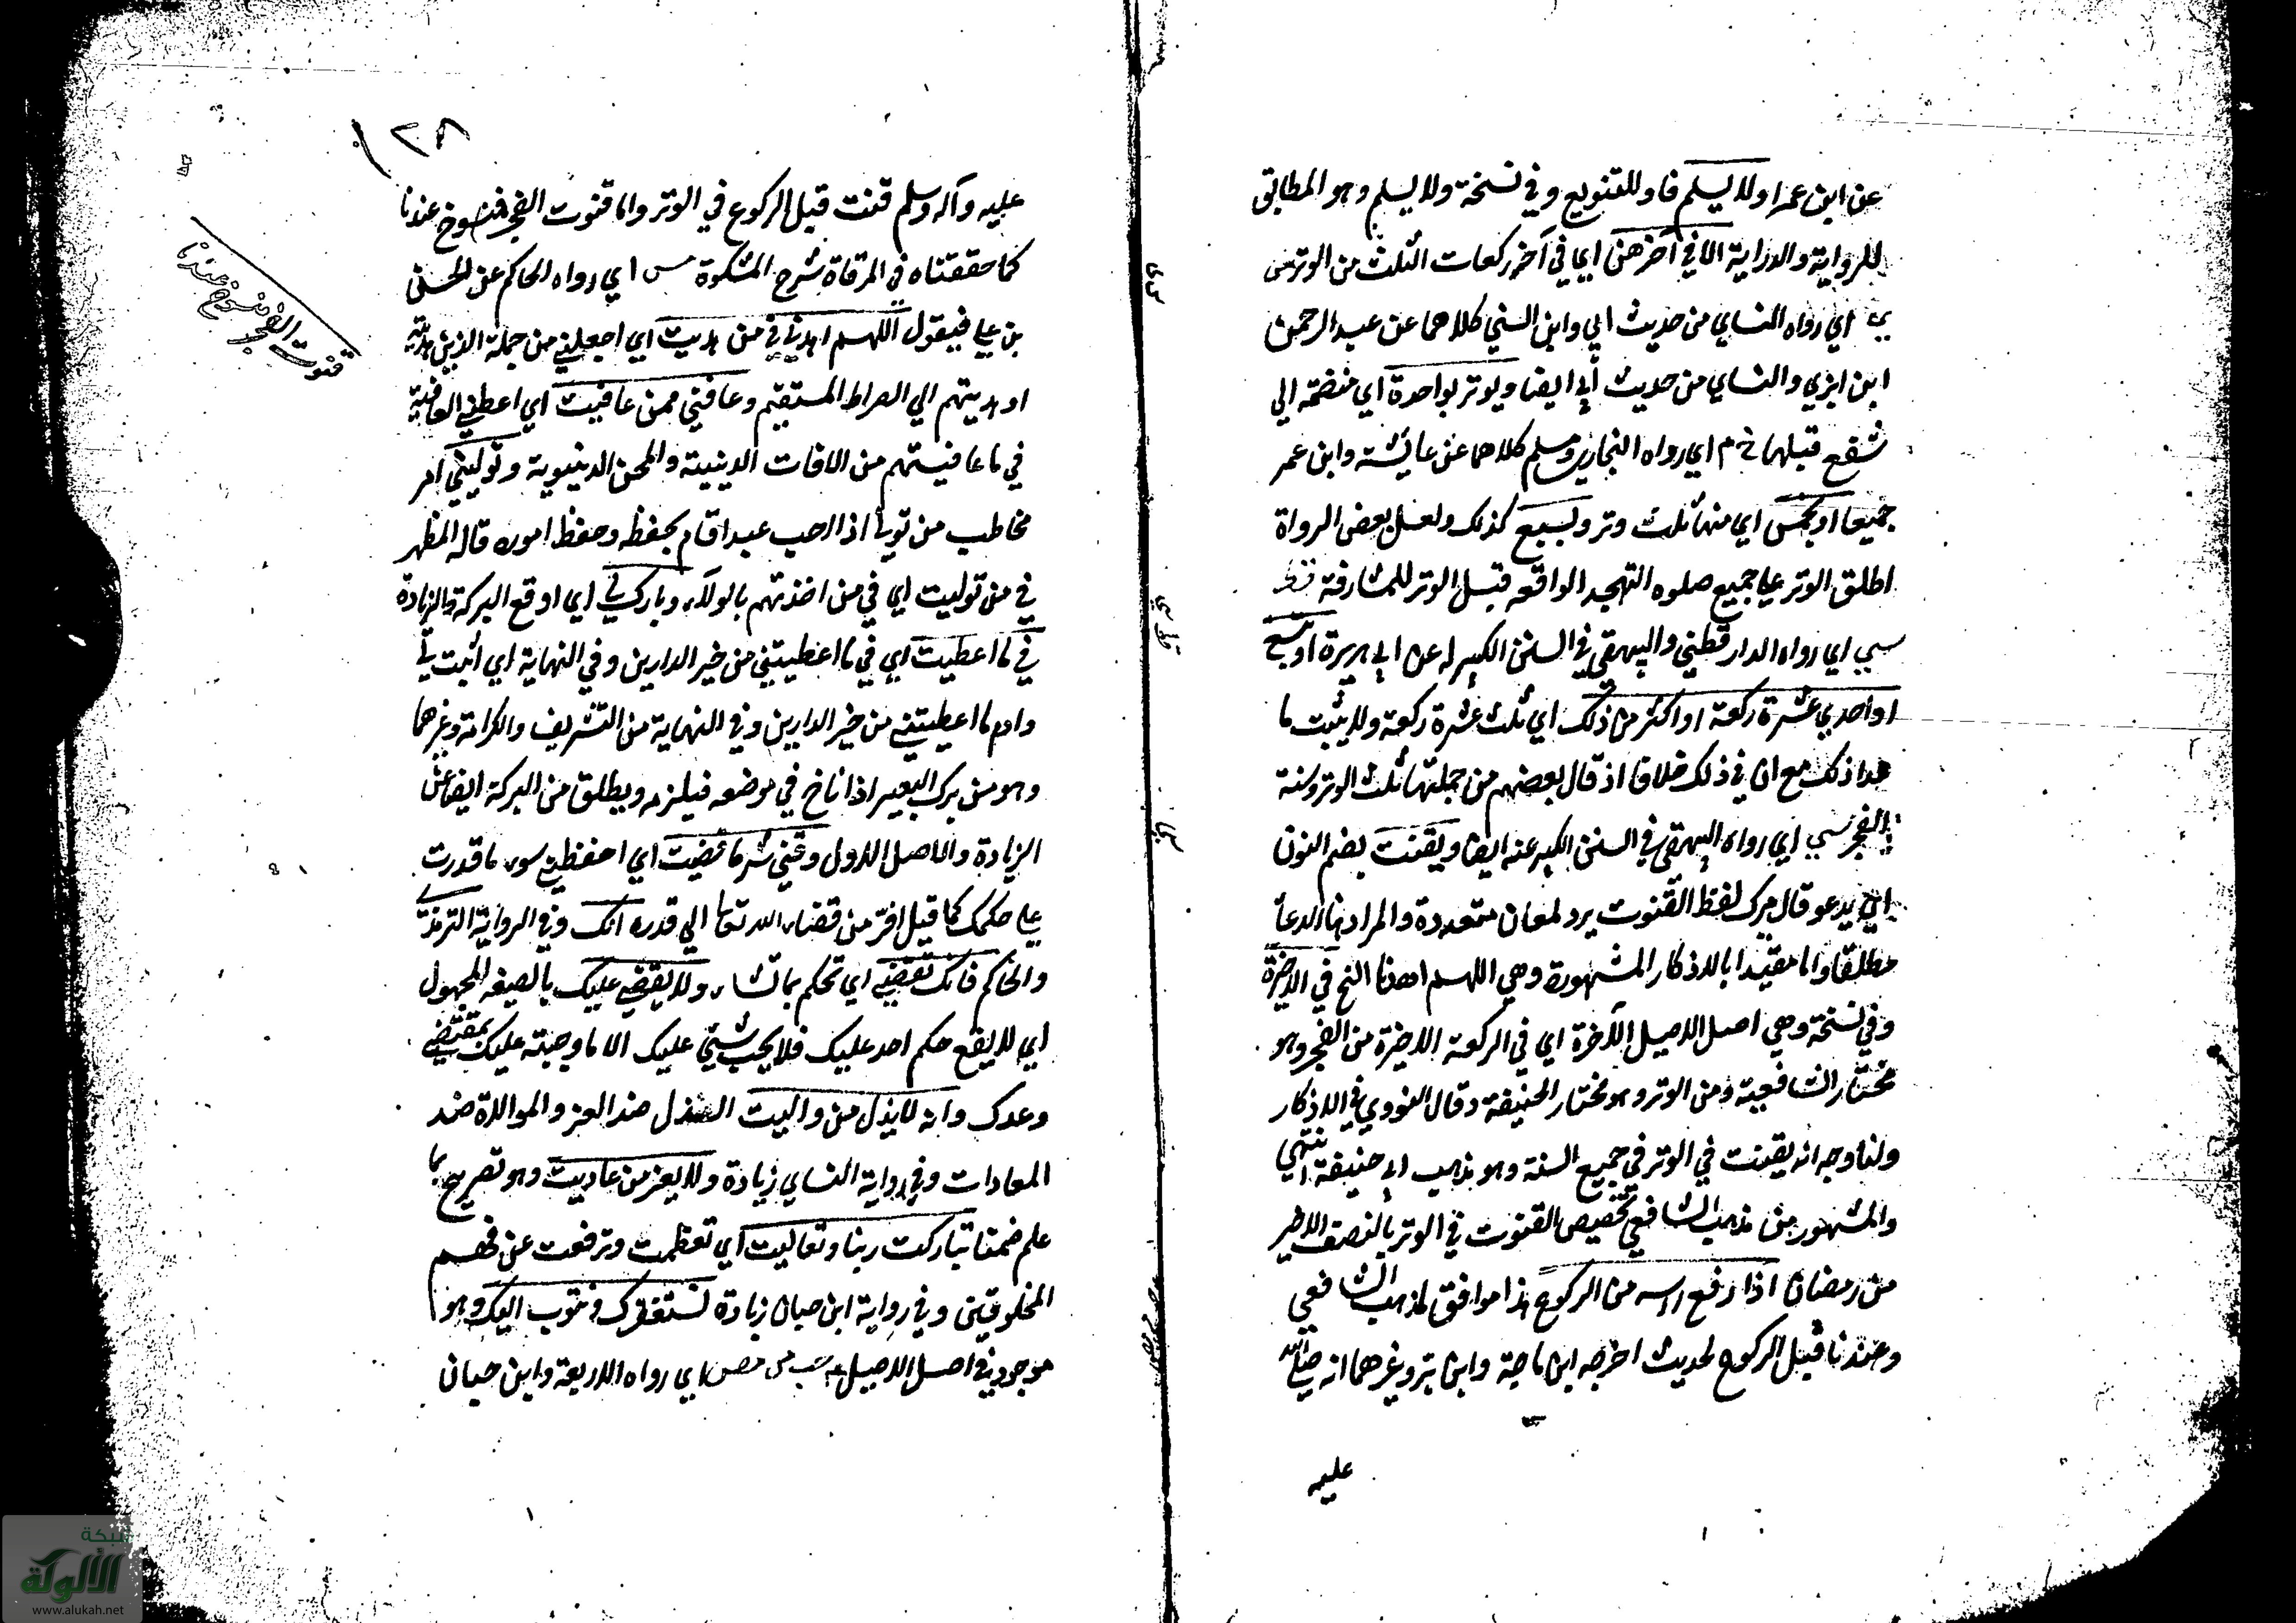 عن ابن عمر او لا يسلم فاو للتنويع وفي نسخة ولا يسلم وهو المطابق
للرواية والدراية الا في آخرهن اي في آخر ركعات الثلث من الوتر س
ي اي رواه النساي من حديث ابي وابن السني كلاهما عن عبد الرحمن
ابن ابزي والنساي من حديث أبي ايضا ويوتر بواحدة اي منضمة الي
شفع قبلها خ م اي رواه البخاري ومسلم كلاهما عن عايشة وابن عمر
جميعا او بخمس اي منها ثلث وتر وبسبع كذلك ولعل بعض الرواة
اطلق الوتر علي جميع صلوه التهجد الواقعه قبل الوتر للمشارفة قط
سي اي رواه الدارقطني والبيهقي في السنن الكبير له عن ابي هريرة او بتسع
او احدي عشرة ركعة او اكثر من ذلك اي ثلث عشرة ركعة ولا يثبت ما
عدا ذلك مع ان في ذلك خلافا اذ قال بعضهم من جملتها ثلث الوتر وسنة
الفجر سي اي رواه البيهقي في السنن الكبير عنه ايضا ويقنت بضم النون
اي يدعو قال ميرك لفظ القنوت يرد لمعان متعددة والمراد هنا الدعأ
مطلقا واما مقيدا بالاذكار المشهورة وهي اللهم اهدنا الخ في الاخيرة
وفي نسخة وهي اصل الاصيل الآخرة اي في الركعة الاخيرة من الفجر وهو
مختار الشافعية ومن الوتر وهو مختار الحنيفة وقال النووي في الاذكار
ولنا وجه انه يقنت في الوتر في جميع السنة وهو مذهب ابي حنيفة انتهي
والمشهور من مذهب الشافعي تخصيص القنوت في الوتر بالنصف الاخير
من رمضان اذا رفع راسه من الركوع هذا موافق لمذهب الشافعي
وعندنا قبل الركوع لحديث اخرجه ابن ماجة وابن وغيرهما انه صلي الله
عليه
١٣٨
عليه وآله وسلم قنت قبل الركوع في الوتر واما قنوت الفجر فمنسوخ عندنا
كما حققناه في المرقاة شرح المشكوة مس اي رواه الحاكم عن الحسن
بن علي فيقول اللهم اهدني في من هديت اي اجعلني من جملة الذين هديته
او هديتهم الي الصراط المستقيم وعافني ممن عافيت اي اعطني العافية
في ما عافيتهم من الافات الدينية والمحن الدنيوية وتولني امر
مخاطب من تولي اذا احب عبدا قام بحفظه وحفظ اموره قاله المظهر
في من توليت اي في من اخذتهم بالولآء وبارك لي اي اوقع البركة والزيادة
في ما اعطيت اي في ما اعطيتني من خير الدارين وفي النهاية اي اثبت لي
وادم ما اعطيتني من خير الدارين وفي النهاية من التشريف والكرامة وغيرهما
وهو من برك البعير اذا ناخ في موضعه فيلزمه ويطلق من البركة ايضا علي
الزيادة والاصل الاول وقني شر ما قضيت اي احفظني سوء ما قدرت
علي حكمك كما قيل افر من قضاء الله تعا الي قدره انك وفي الرواية الترمذي
والحاكم فانك تقضي اي تحكم بما تشاء ولا يقضي عليك بالصيغه المجهول
اي لا يقع حكم احد عليك فلا يجب شئي عليك الا ما وجبته عليك بمقتضي
وعدك وانه لا يذل من واليت الذل ضد العز والموالاة ضد
المعادات وفي رواية النساي زيادة ولا يعز من عاديت وهو تصريح بما
علم ضمنا تباركت ربنا وتعاليت اي تعظمت وترفعت عن فهم
المخلوقين وفي رواية ابن حبان زيادة نستغفرك ونتوب اليك وهو
موجود في اصل الاصيل حب مس مص اي رواه الاربعة وابن حبان
قنوت الفجر منسوخ عندنا
شبكة
الألوكة
www.alukah.net